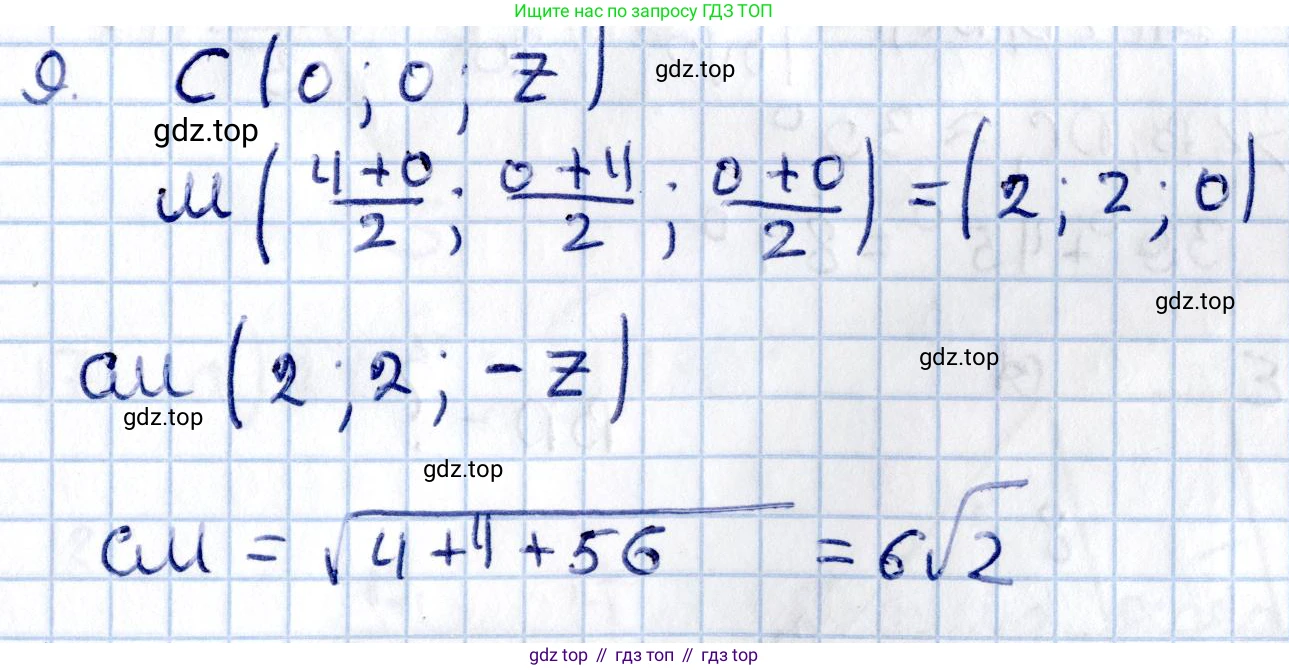 Ищите нас по запросу ГДЗ ТОП
9. C (0; 0; z)
gdz.top
gdz.top
M ( (4+0)/2 ; (0+4)/2 ; (0+0)/2 ) = (2; 2; 0)
gdz.top
CM (2; 2; -z)
gdz.top
gdz.top
gdz.top
CM = √(4+4+56) = 6√2
gdz top // гдз топ // гдз top